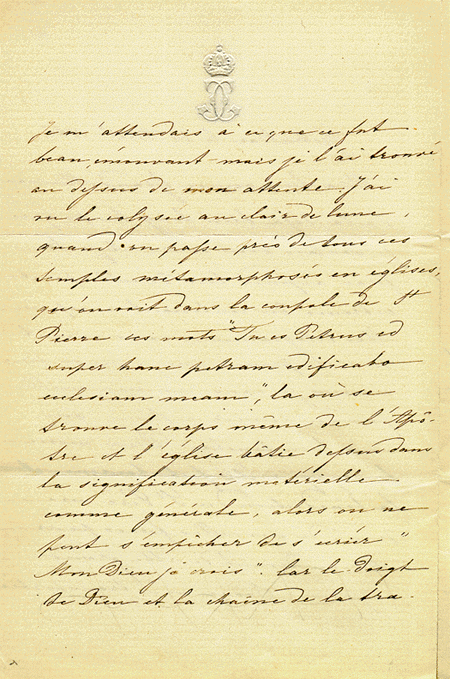 Je m'attendais à ce que ce fut
beau émouvant mais je l'ai trouvé
au dessus de mon attente. J'ai
vu le colysée au clair de lune,
quand on passe près de tous ces
temples métamorphosés en églises,
qu'on voit dans la coupole de St
Pierre ces mots "Tu es Petrus ed
super hanc petram edificabo
ecclesiam meam", la où se
trouve le corps même de l'Apô-
tre et l'église bâtie dessus dans
la signification matérielle
comme générale, alors on ne
peut s'empêcher de s'écrier "
Mon Dieu je crois". Car le doigt
de Dieu et la chaîne de la tra-